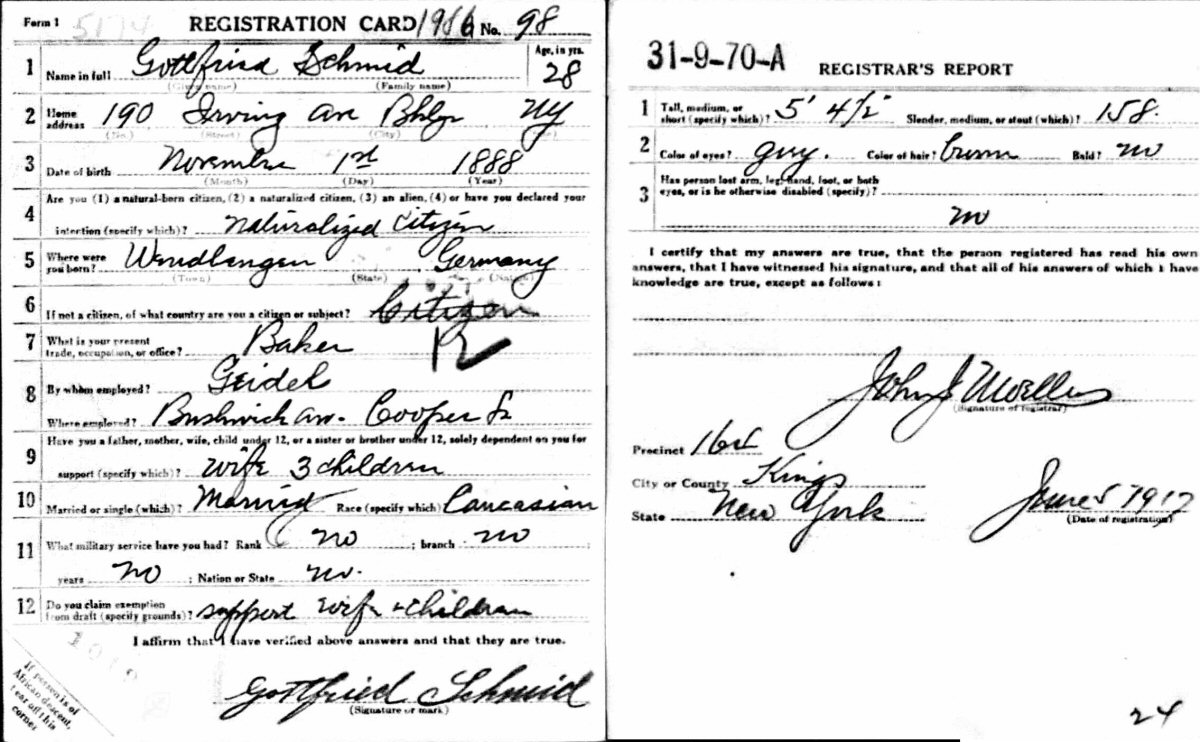 Form 1 5174 REGISTRATION CARD 1986 No. 98
1 Name in full Gottfried Schmid Age, in yrs. 28
(Given name) (Family name)
2 Home address 190 Irving av Bklyn NY
(No.) (Street) (City) (State)
3 Date of birth November 1st 1888
(Month) (Day) (Year)
4 Are you (1) a natural-born citizen, (2) a naturalized citizen, (3) an alien, (4) or have you declared your
intention (specify which)? Naturalized Citizen
5 Where were you born? Wendlingen Germany
(Town) (State) (Nation)
6 If not a citizen, of what country are you a citizen or subject? Citizen
7 What is your present trade, occupation, or office? Baker 12
8 By whom employed? Geidel
Where employed? Bushwick av. Cooper St
9 Have you a father, mother, wife, child under 12, or a sister or brother under 12, solely dependent on you for
support (specify which)? wife 3 children
10 Married or single (which)? Married Race (specify which) Caucasian
11 What military service have you had? Rank no ; branch no
years no ; Nation or State no.
12 Do you claim exemption from draft (specify grounds)? support wife + children
I affirm that I have verified above answers and that they are true.
Gottfried Schmid
(Signature or mark)
If person is of
African descent,
tear off this
corner
31-9-70-A REGISTRAR'S REPORT
1 Tall, medium, or short (specify which)? 5' 4½" Slender, medium, or stout (which)? 158.
2 Color of eyes? grey. Color of hair? brown Bald? no
3 Has person lost arm, leg, hand, foot, or both
eyes, or is he otherwise disabled (specify)?
no
I certify that my answers are true, that the person registered has read his own
answers, that I have witnessed his signature, and that all of his answers of which I have
knowledge are true, except as follows:
John J Moeller
(Signature of registrar)
Precinct 164
City or County Kings
State New York June 5 1917
(Date of registration)
24